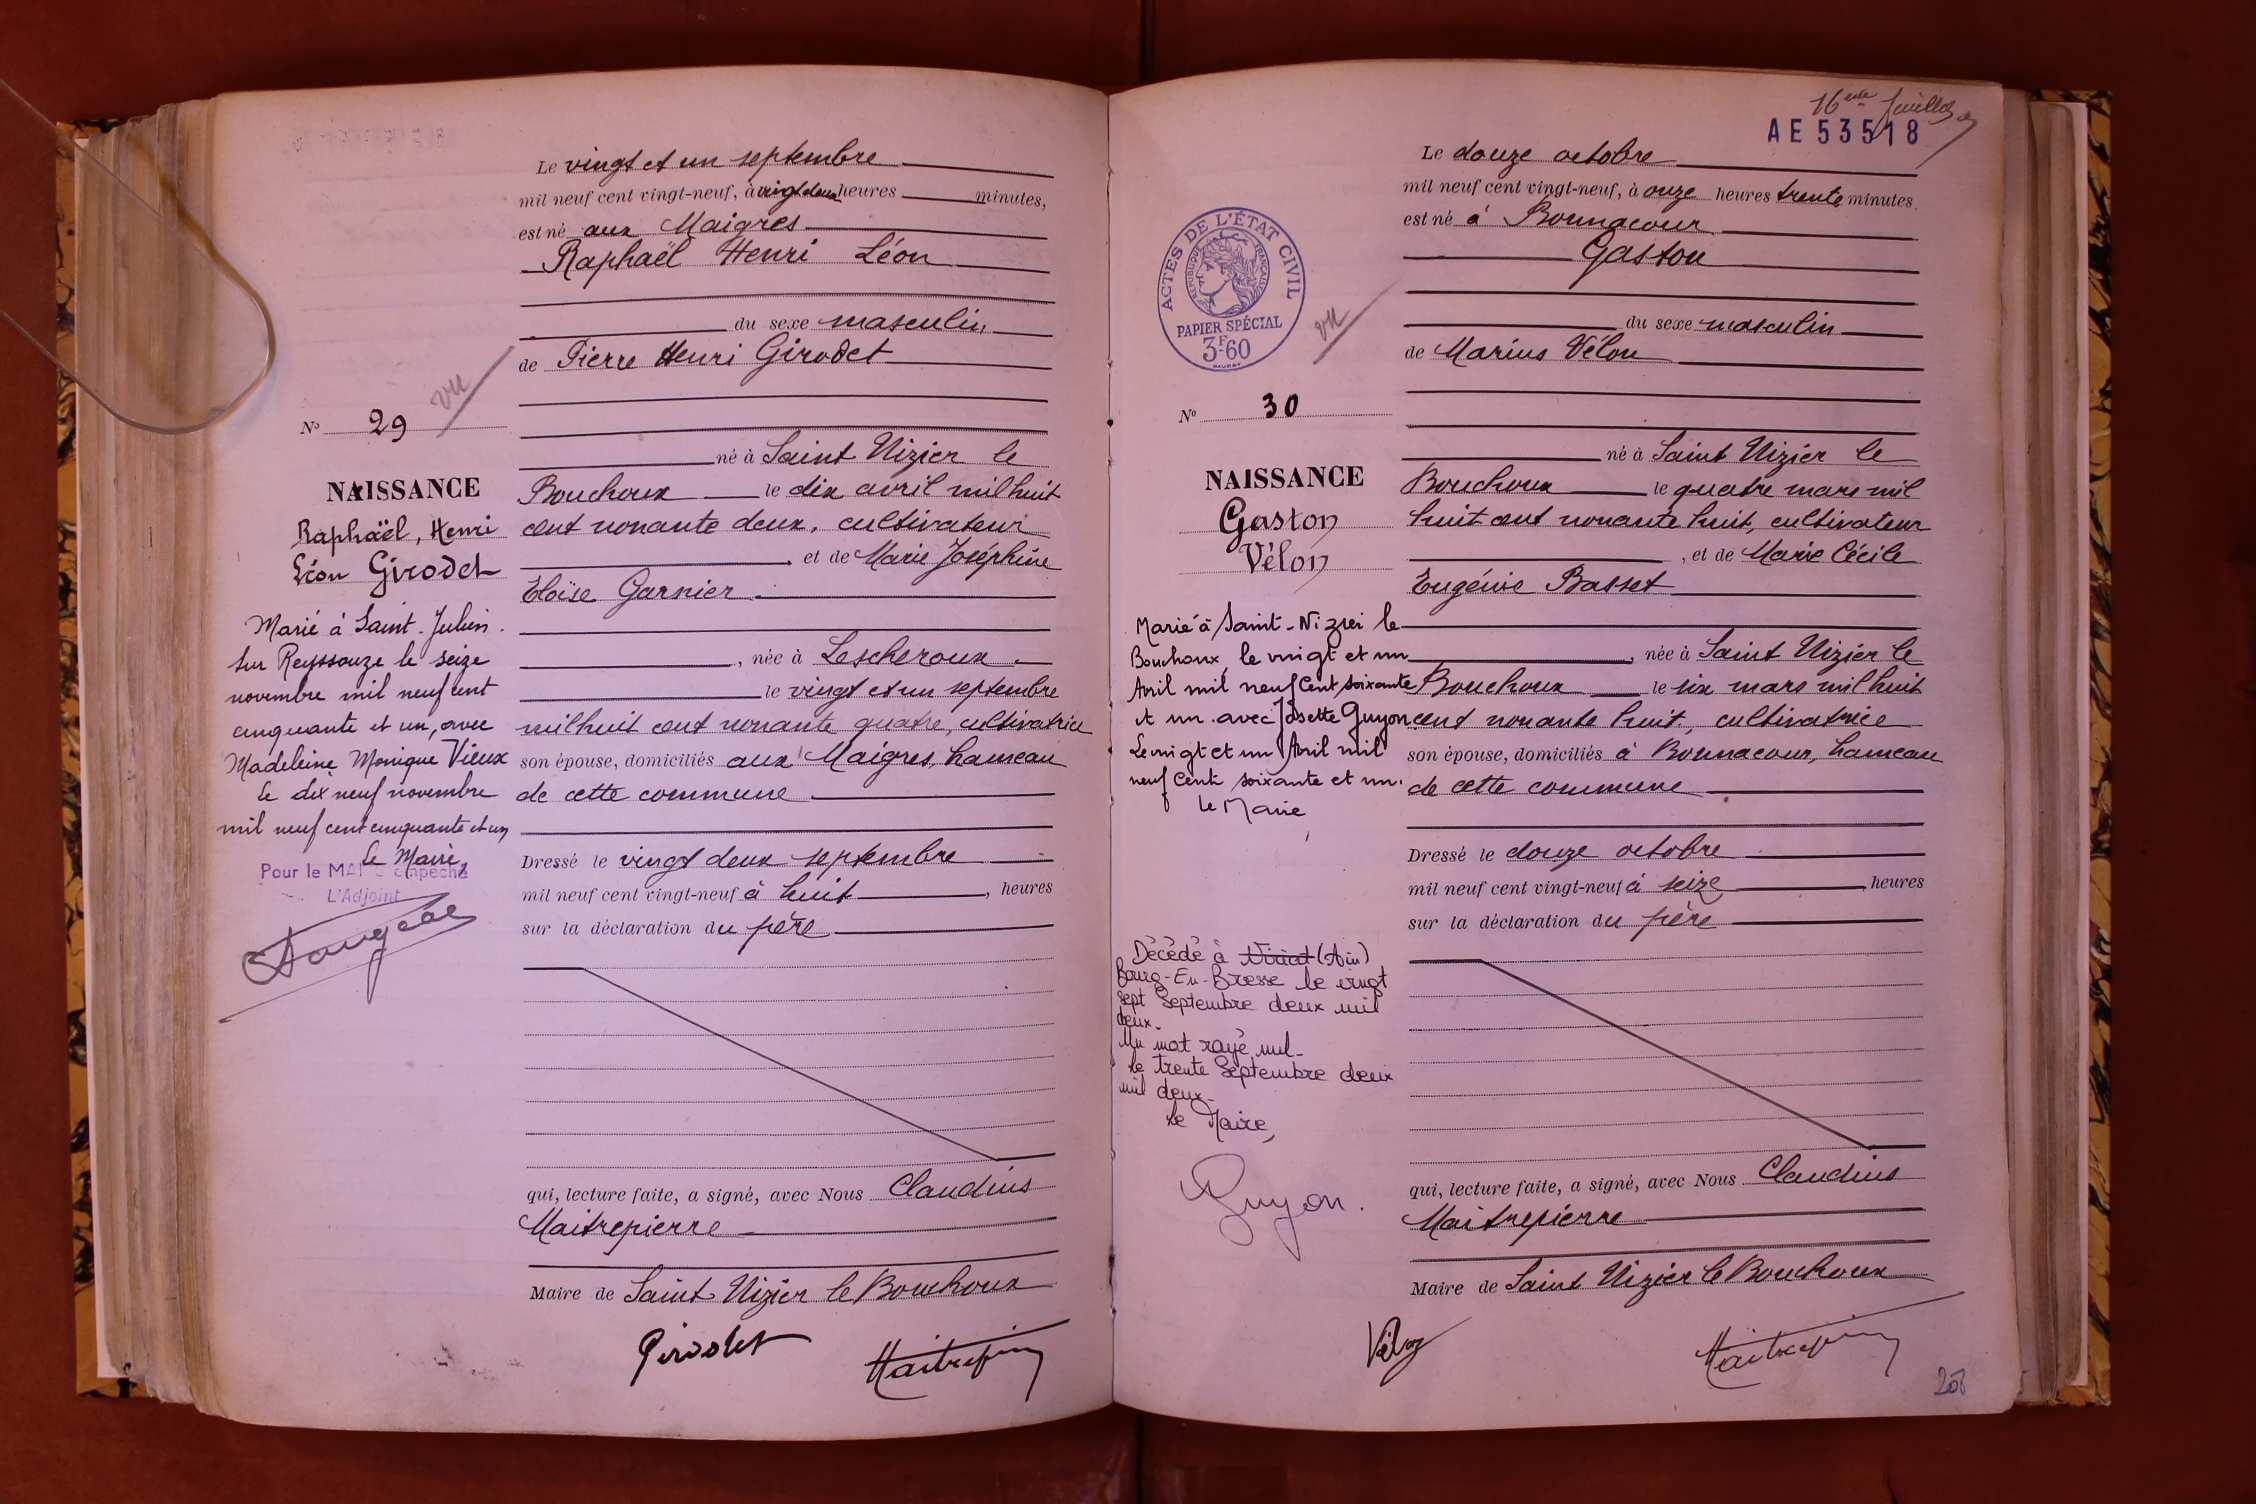 Le vingt et un septembre
mil neuf cent vingt-neuf, à vingt deux heures minutes,
est né aux Maigres
Raphaël Henri Léon
du sexe masculin
de Pierre Henri Girodet
vu
N° 29
né à Saint Nizier le
NAISSANCE
Bouchoux le dix avril mil huit
Raphaël, Henri
cent nonante deux, cultivateur
Léon Girodet
, et de Marie Joséphine
Eloïse Garnier
Marié à Saint-Julien
sur Reyssouze le seize
novembre mil neuf cent
cinquante et un, avec
Madeleine Monique Vieux
le dix neuf novembre
mil neuf cent cinquante et un
Le Maire,
Pour le MAIRE empêché
L'Adjoint
, née à Lescheroux
le vingt et un septembre
mil huit cent nonante quatre, cultivatrice
son épouse, domiciliés aux Maigres, hameau
de cette commune
Dressé le vingt deux septembre
mil neuf cent vingt-neuf à huit , heures
sur la déclaration du père
qui, lecture faite, a signé, avec Nous Claudius
Maitrepierre
Maire de Saint Nizier le Bouchoux
Girodet
Maitrepierre
16eme Juillet
AE 53518
Le douze octobre
mil neuf cent vingt-neuf, à onze heures trente minutes
est né à Bonnacour
Gaston
ACTES DE L'ÉTAT CIVIL
RÉPUBLIQUE FRANÇAISE
PAPIER SPÉCIAL
3F-60
vu
du sexe masculin
de Marius Vélon
N° 30
né à Saint Nizier le
NAISSANCE
Bouchoux le quatre mars mil
Gaston
huit cent nonante huit, cultivateur
Vélon
, et de Marie Cécile
Eugénie Basset
Marié à Saint-Nizier le
Bouchoux, le vingt et un
Avril mil neuf Cent soixante
et un avec Josette Guyon
Le vingt et un Avril mil
neuf Cent soixante et un.
Le Maire
, née à Saint Nizier le
Bouchoux le six mars mil huit
cent nonante huit, cultivatrice
son épouse, domiciliés à Bonnacour, hameau
de cette commune
Dressé le douze octobre
mil neuf cent vingt-neuf à seize , heures
sur la déclaration du père
Décédé à Viriat (Ain)
Bourg-En-Bresse le vingt
sept Septembre deux mil
deux.
Un mot rayé nul_
Le trente Septembre deux
mil deux_
Le Maire,
Guyon.
qui, lecture faite, a signé, avec Nous Claudius
Maitrepierre
Maire de Saint Nizier le Bouchoux
Vélon
Maitrepierre